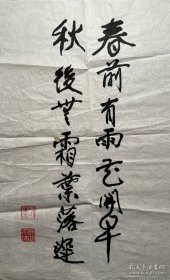 春前有雨花開早
秋後無霜葉落遲